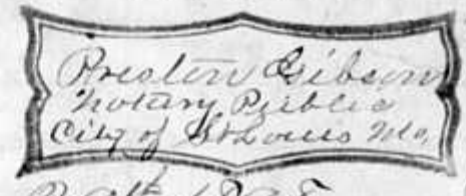 Preston Gibson
Notary Public
City of St Louis Mo,